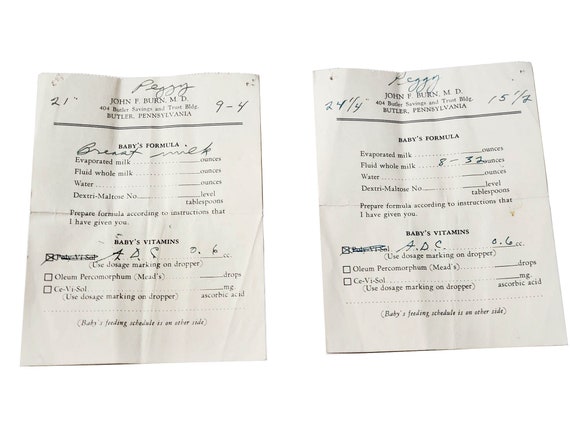 Peggy
21" JOHN F. BURN, M. D. 9-4
404 Butler Savings and Trust Bldg.
BUTLER, PENNSYLVANIA
BABY'S FORMULA
Breast milk
Evaporated milk ounces
Fluid whole milk ounces
Water ounces
Dextri-Maltose No. level
tablespoons
Prepare formula according to instructions that
I have given you.
BABY'S VITAMINS
Poly-Vi-Sol A.D.C. 0.6 cc.
(Use dosage marking on dropper)
Oleum Percomorphum (Mead's) drops
Ce-Vi-Sol mg.
(Use dosage marking on dropper) ascorbic acid
(Baby's feeding schedule is on other side)
Peggy
24 1/4" JOHN F. BURN, M. D. 15 1/2
404 Butler Savings and Trust Bldg.
BUTLER, PENNSYLVANIA
BABY'S FORMULA
Evaporated milk ounces
Fluid whole milk 8-32 ounces
Water ounces
Dextri-Maltose No. level
tablespoons
Prepare formula according to instructions that
I have given you.
BABY'S VITAMINS
Poly-Vi-Sol A.D.C. 0.6 cc.
(Use dosage marking on dropper)
Oleum Percomorphum (Mead's) drops
Ce-Vi-Sol mg.
(Use dosage marking on dropper) ascorbic acid
(Baby's feeding schedule is on other side)